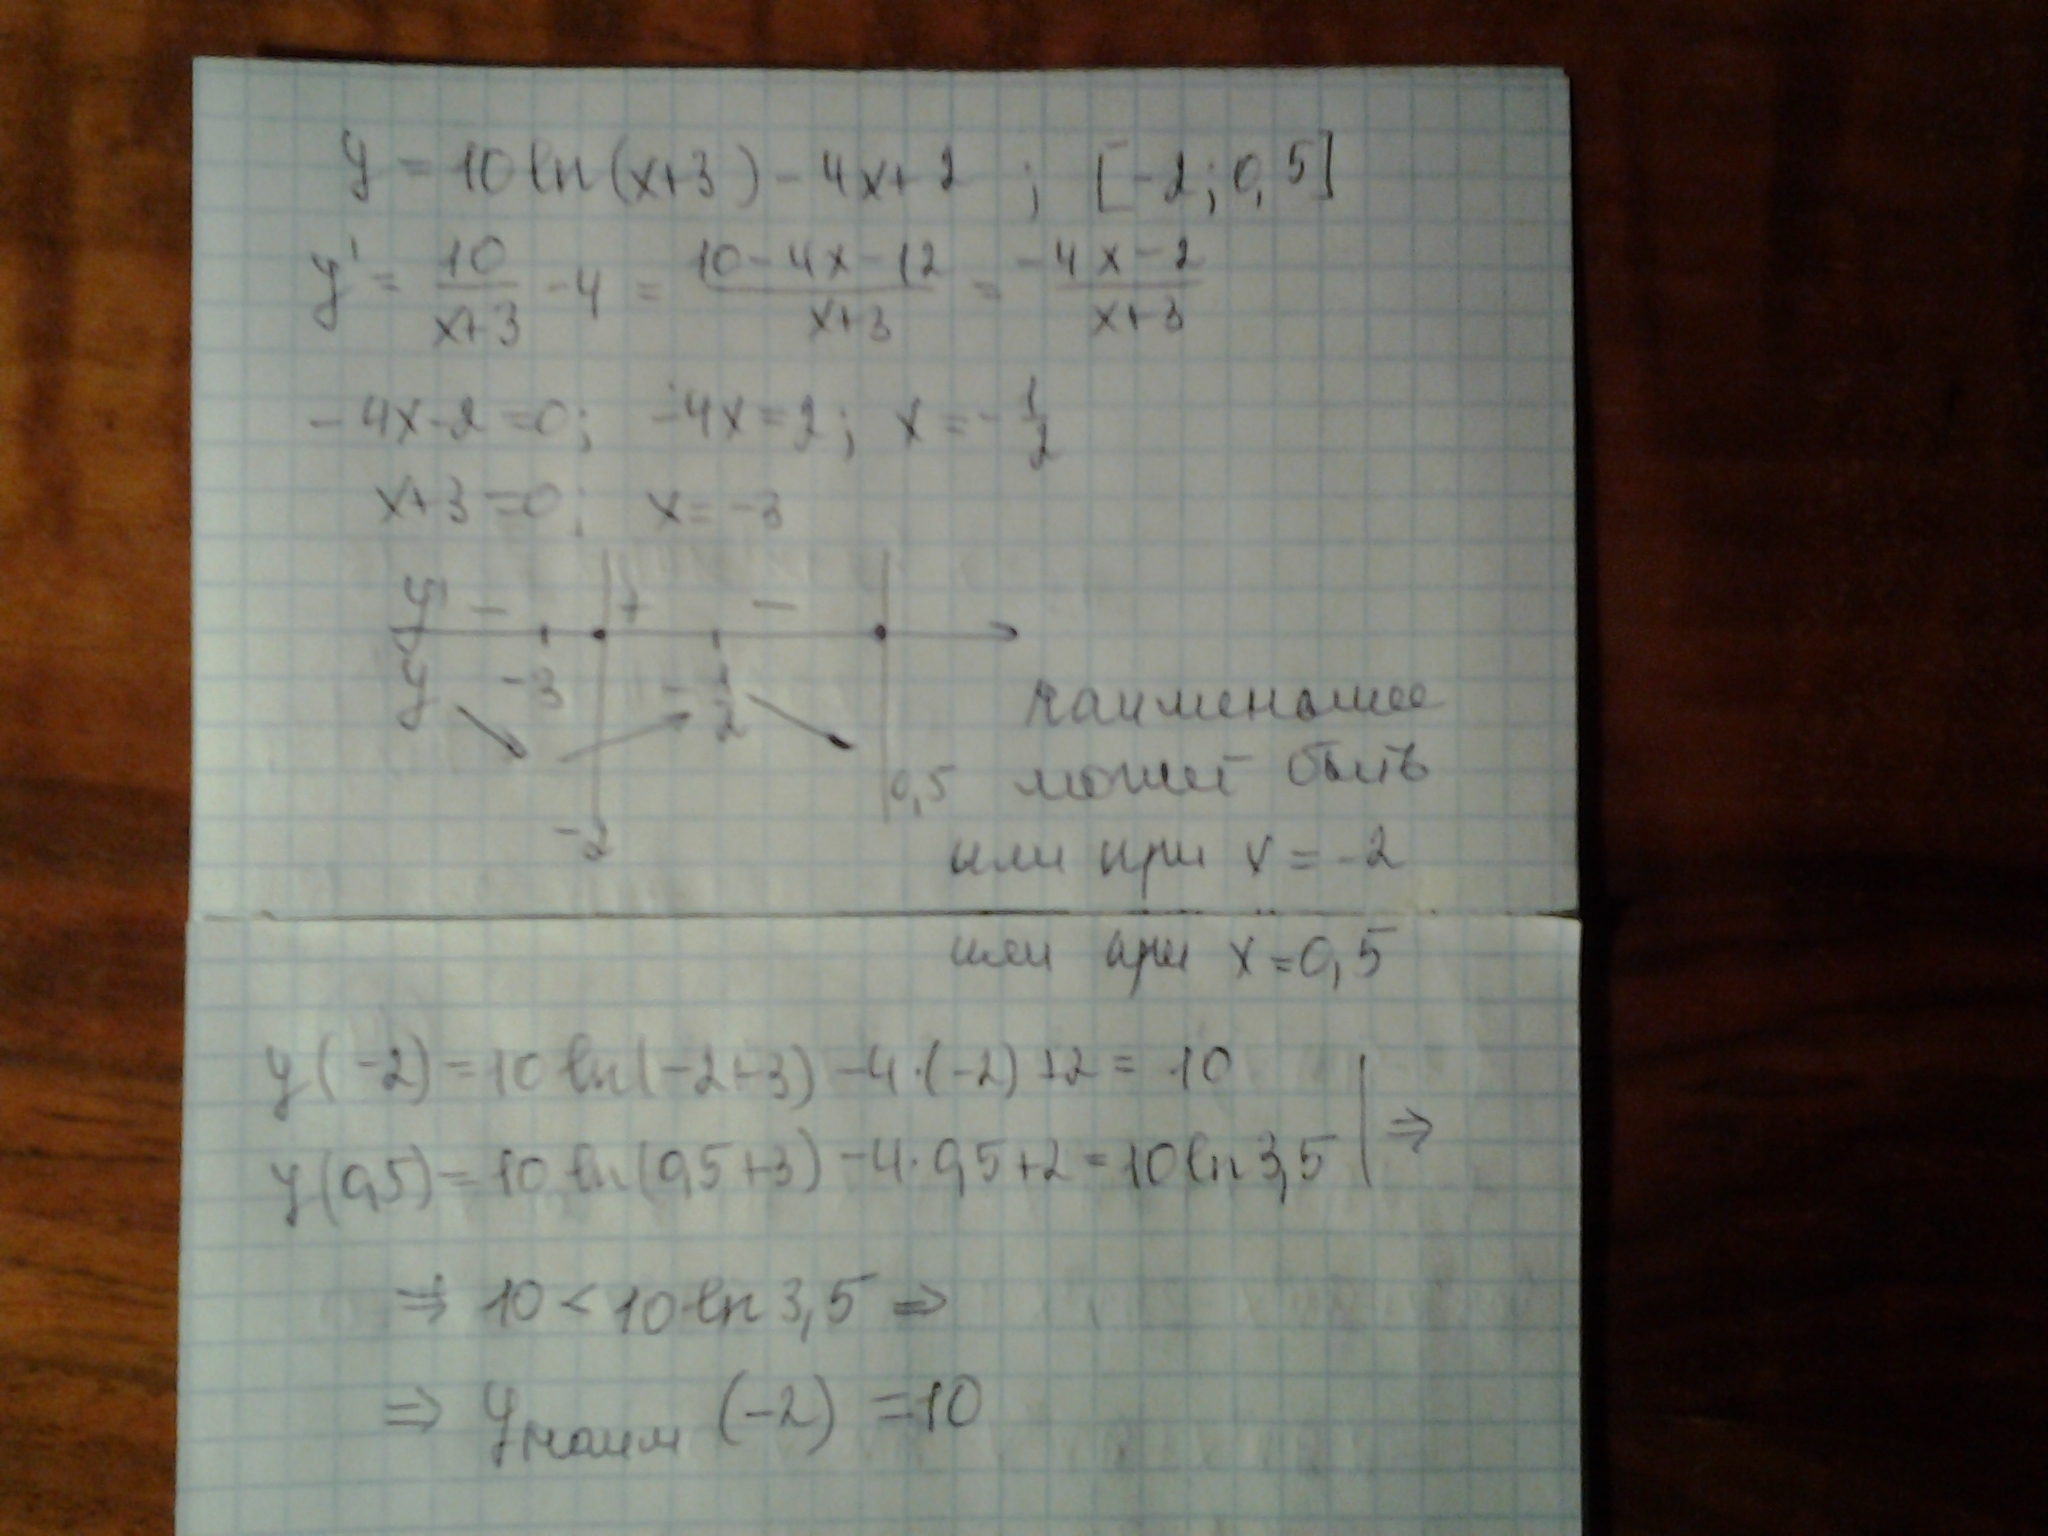 y = 10 ln(x+3) - 4x + 2 ; [-2; 0,5]
y' = 10/(x+3) - 4 = (10 - 4x - 12)/(x+3) = (-4x - 2)/(x+3)
-4x - 2 = 0; -4x = 2; x = -1/2
x + 3 = 0; x = -3
y' - + -
y -3 -1/2
наименьшее
0,5 может быть
-2 или при x = -2
или при x = 0,5
y(-2) = 10 ln(-2+3) - 4·(-2) + 2 = 10
y(0,5) = 10 ln(0,5+3) - 4·0,5 + 2 = 10 ln 3,5 | ⇒
⇒ 10 < 10 ln 3,5 ⇒
⇒ y наим (-2) = 10